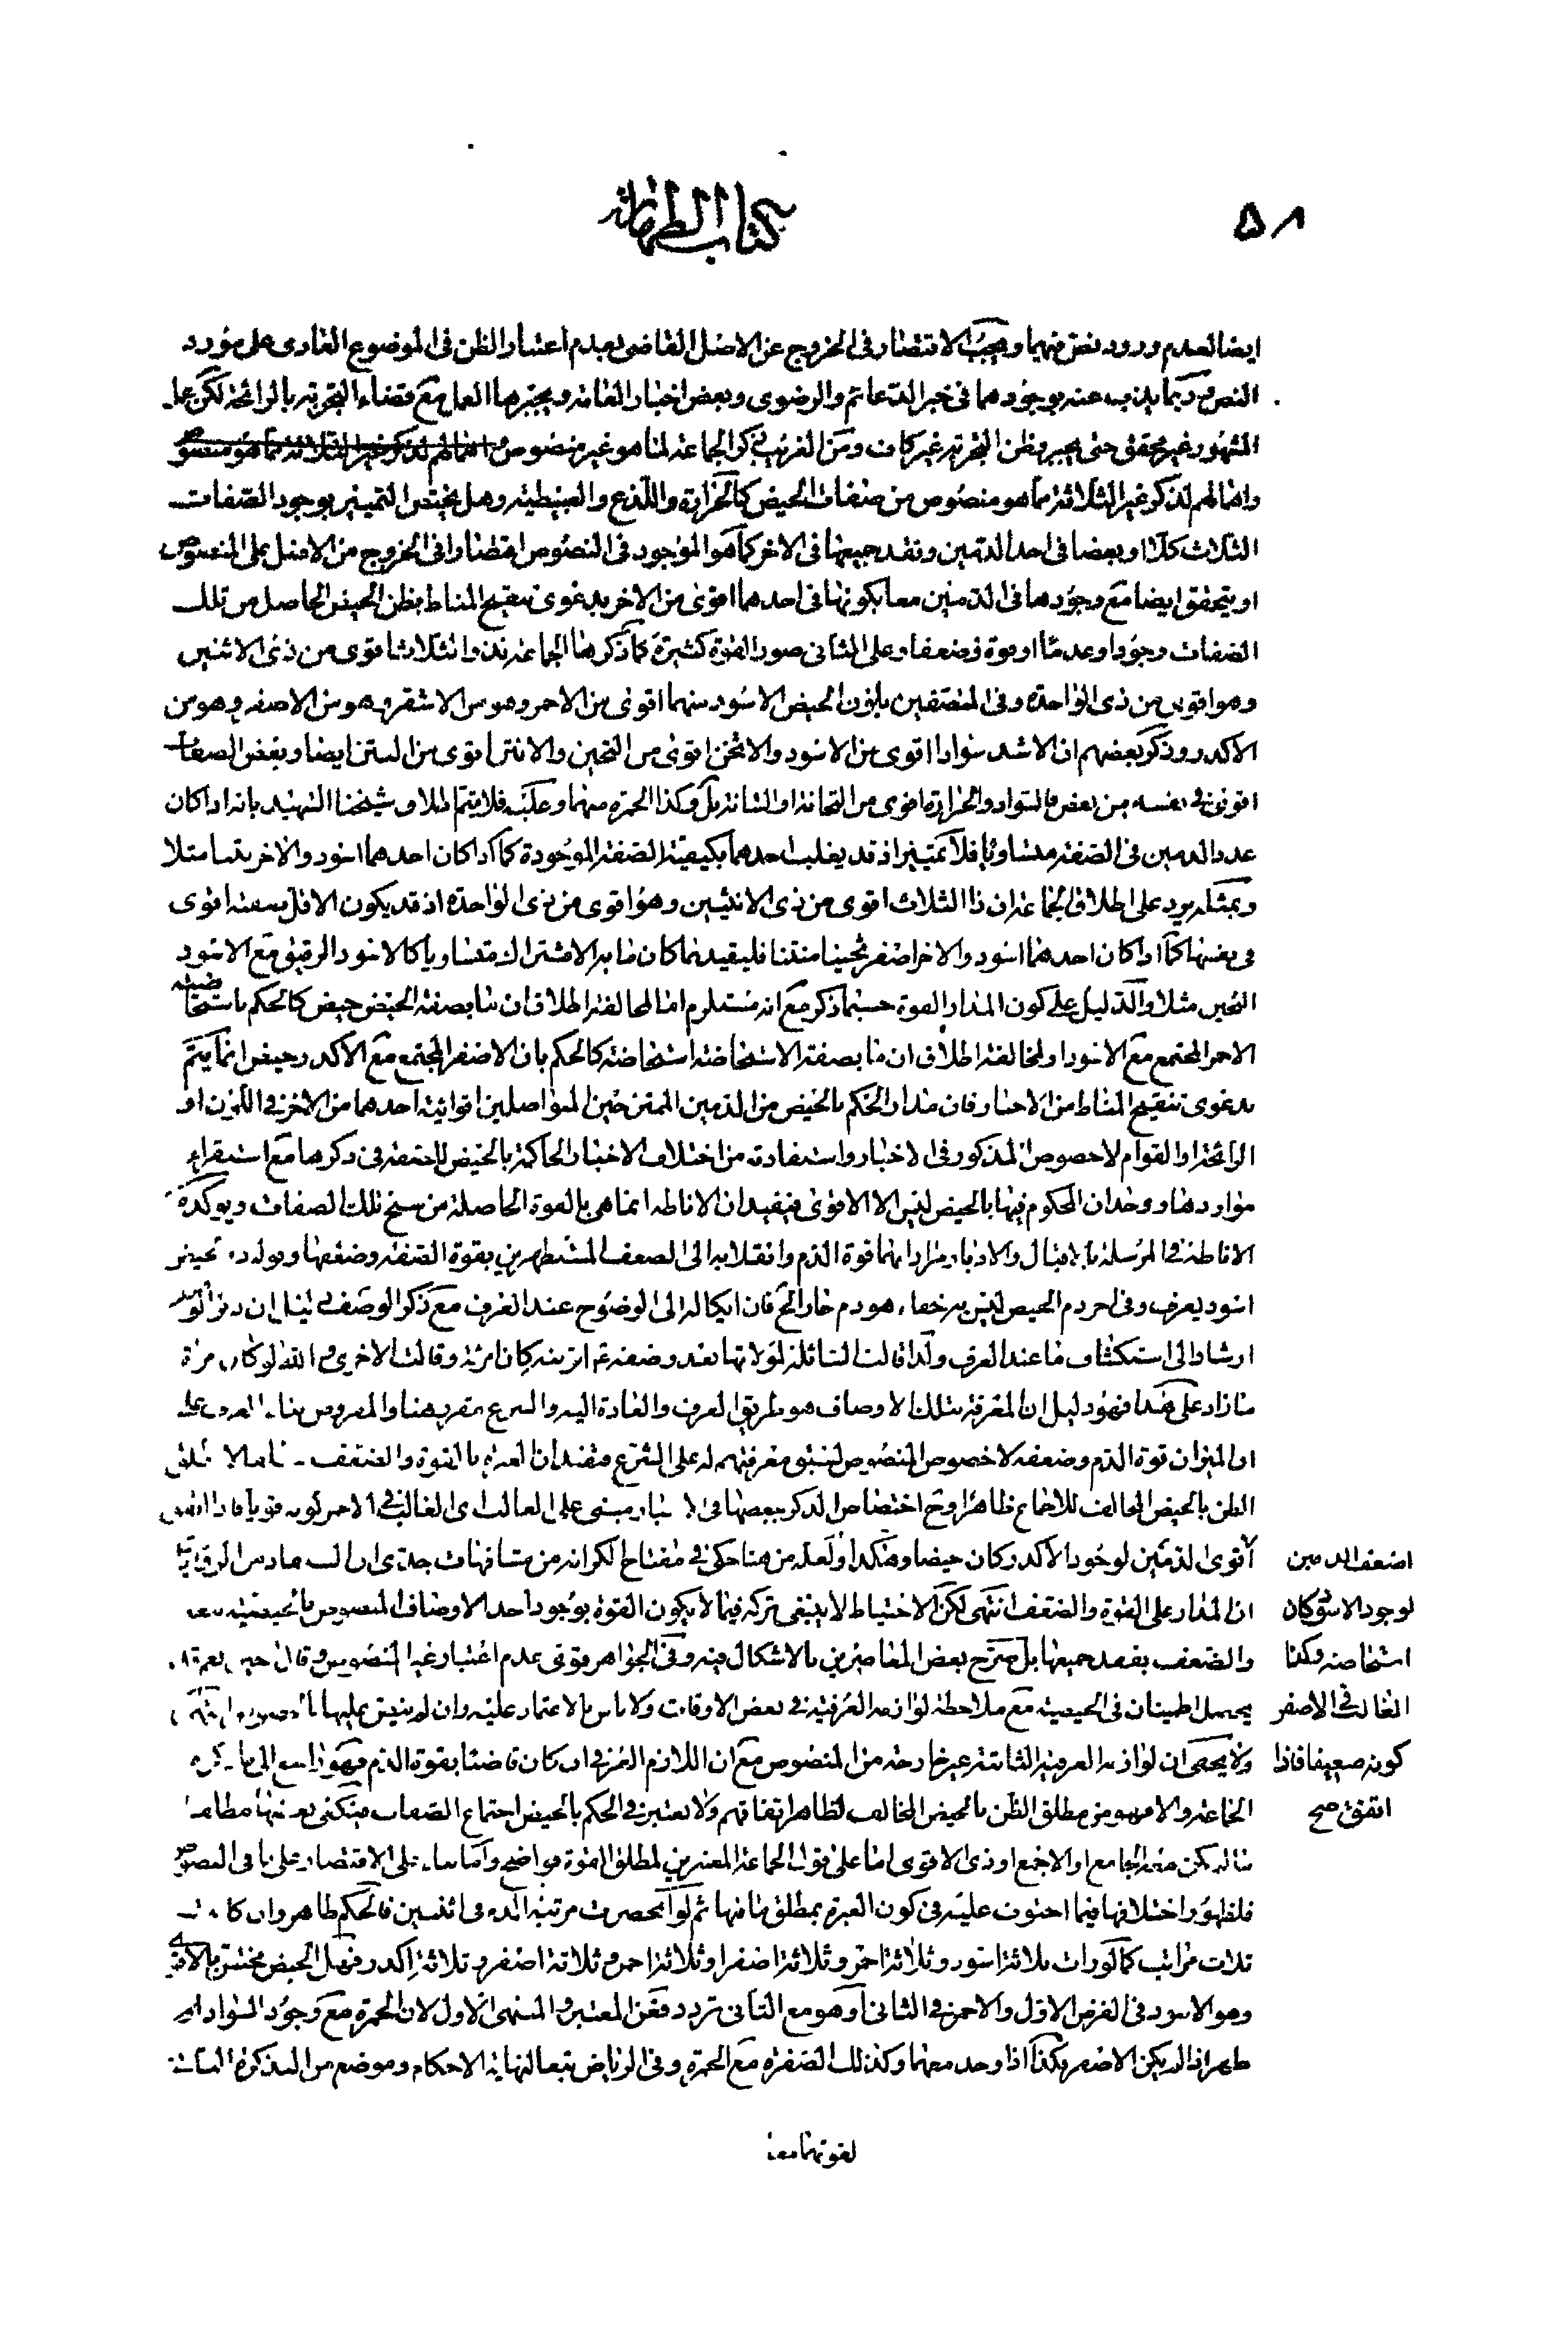 ۵۸
كتاب الطهارة
ايضا لعدم ورود نص فيهما ويجب الاقتصار فى الخروج عن الاصل القاضى بعدم اعتبار الظن فى الموضوع العارى على مورد
النص وربما يذب عنه بوجودهما فى خبر الدعائم والرضوى وبعض اخبار العامة ويجبرها العمل مع قضاء التجربة بالرائحة لكن عمل
المشهور غير محقق حتى يجبر وظن التجربة غير كاف ومن الغريب ذكر الجماعة لما هو غير منصوص
واهمالهم لذكر غير الثلاثة مما هو منصوص من صفات الحيض كالحرارة واللذع والعبيطية وهل يختص التمييز بوجود الصفات
الثلاث كلا او بعضا فى احد الدمين وفقد جميعها فى الاخر كما هو الموجود فى النصوص اقتصارا فى الخروج من الاصل على المنصوص
او يتحقق ايضا مع وجودها فى الدمين معا بكونها فى احدهما اقوى من الاخر بدعوى تنقيح المناط بظن الحيض الحاصل من تلك
الصفات وجودا وعدما او قوة وضعفا وعلى الثانى صور القوة كثيرة كما ذكرها الجماعة فذو الثلاث اقوى من ذى الاثنين
وهو اقوى من ذى الواحدة وفى المتصفين بلون الحيض الاسود منهما اقوى من الاحمر وهو من الاشقر وهو من الاصفر وهو من
الاكدر وذكر بعضهم ان الاشد سوادا اقوى من الاسود والاثخن اقوى من الثخين والانتن اقوى من المنتن ايضا وبعض الصفات
اقوى فى نفسه من بعض فالسواد والحرارة اقوى من الثخانة او النتانة بل وكذا الحمرة منهما وعليه فلا يتم اطلاق شيخنا الشهيد بانه اذا كان
عدد الدمين فى الصفة متساويا فلا تمييز اذ قد يغلب احدهما بكيفية الصفة الموجودة كما اذا كان احدهما اسود والاخر منتنا مثلا
وبمثله يرد على اطلاق الجماعة ان ذا الثلاث اقوى من ذى الاثنين وهو اقوى من ذى الواحدة اذ قد يكون الاقل صفة اقوى
فى نفسها كما اذا كان احدهما اسود والاخر اصفر ثخينا منتنا فليقيد بما كان ما به الاشتراك متساويا كالاسود الرقيق مع الاسود
الثخين مثلا والدليل على كون المدار القوة حسبما ذكر مع انه مستلزم اما لمخالفة اطلاق ان ما بصفة الحيض حيض كالحكم باستحاضية
الاحمر المجتمع مع الاسود او لمخالفة اطلاق ان ما بصفة الاستحاضة استحاضة كالحكم بان الاصفر المجتمع مع الاكدر حيض انما يتم
بدعوى تنقيح المناط من الاخبار فان مدار الحكم بالحيض من الدمين الممتزجين المتواصلين اقوائية احدهما من الاخر فى اللون او
الرائحة او القوام لا خصوص المذكور فى الاخبار واستفادته من اختلاف الاخبار الحاكمة بالحيض للصفة فى ذكرها مع استقراء
مواردها ووجدان المحكوم فيها بالحيض ليس الا الاقوى فيفيد ان الاناطة انما هى بالقوة الحاصلة من سنخ تلك الصفات ويؤكده
الاناطة فى المرسلة بالاقبال والادبار مرادا بهما قوة الدم وانقلابه الى الضعف المستظهرين بقوة الصفة وضعفها وقوله دم الحيض
اسود يعرف وفى اخر دم الحيض ليس به خفاء هو دم حار الخ فان ايكاله الى الوضوح عند العرف مع ذكر الوصف
ارشاد الى استكشاف ما عند العرف ولذا قالت السائلة لمولاتها بعد وصفه ع اترينه كان امرئة وقالت الاخرى والله لو كان مرئة
ما زاد على هذا فهو دليل ان المعرفة بتلك الاوصاف هو طريق العرف والعادة اليه والشرع مقررهما والمعروض بناء العرف على
ان الميزان قوة الدم وضعفه لا خصوص المنصوص لسبق معرفتهم له على الشرع فتفيد ان العبرة بالقوة والضعف لا مطلق
الظن بالحيض المخالف للاجماع ظاهرا وح اختصاص الذكر ببعضها فى الاخبار مبنى على الغالب اذ الغالب فى الاحمر كونه قويا فاذا اتفق
اقوى الدمين لوجود الاكدر كان حيضا وهكذا ولعله من هنا حكى فى مفتاح الكرامة من مشافهات
ان المدار على القوة والضعف انتهى لكن الاحتياط لا ينبغى تركه فيما لا يكون القوة بوجود احد الاوصاف المنصوص بالحيضية معه
والضعف بفقد جميعها بل صرح بعض المعاصرين بالاشكال فيه وفى الجواهر قوى عدم اعتبار غير المنصوص وقال
يحصل اطمينان فى الحيضية مع ملاحظة لوازمه العرفية فى بعض الاوقات ولا باس بالاعتماد عليه وان لم ينص عليها
ولا يخفى ان لوازمه العرفية الثابتة غير خارجة من المنصوص مع ان اللازم العرفى ان كان قاضيا بقوة الدم فهو راجع الى ما ذكره
الجماعة والا فهو من مطلق الظن بالحيض المخالف لظاهر اتفاقهم ولا يعتبر فى الحكم بالحيض اجتماع الصفات فيكفى بعضها مطلقا
ما لم يكن معه الجامع او الاجمع او ذى الاقوى اما على قول الجماعة المعتبرين لمطلق القوة فواضح واما بناء على الاقتصار على ما فى النصوص
فلظهور اختلافها فيما احتوت عليه فى كون العبرة بمطلق ما فيها ثم لو انحصرت مرتبة الدم فى اثنين فالحكم ظاهر وان كانت
ثلاث مراتب كما لو رات ثلاثة اسود وثلاثة احمر وثلاثة اصفر او ثلاثة احمر وثلاثة اصفر وثلاثة اكدر فهل الحيض مختص بالاقوى
وهو الاسود فى الفرض الاول والاحمر فى الثانى او هو مع الثانى تردد فعن المعتبر والمنتهى الاول لان الحمرة مع وجود السواد
طهر اذا لم يكن الاصفر فكذا اذا وجد معهما وكذلك الصفرة مع الحمرة وفى الرياض تبعا لنهاية الاحكام وموضع من التذكرة الثانى
اضعف الدمين
لوجود الاسود كان
استحاضة وكذا
الغالب فى الاصفر
كونه ضعيفا فاذا
اتفق صح
لقوتهما معا